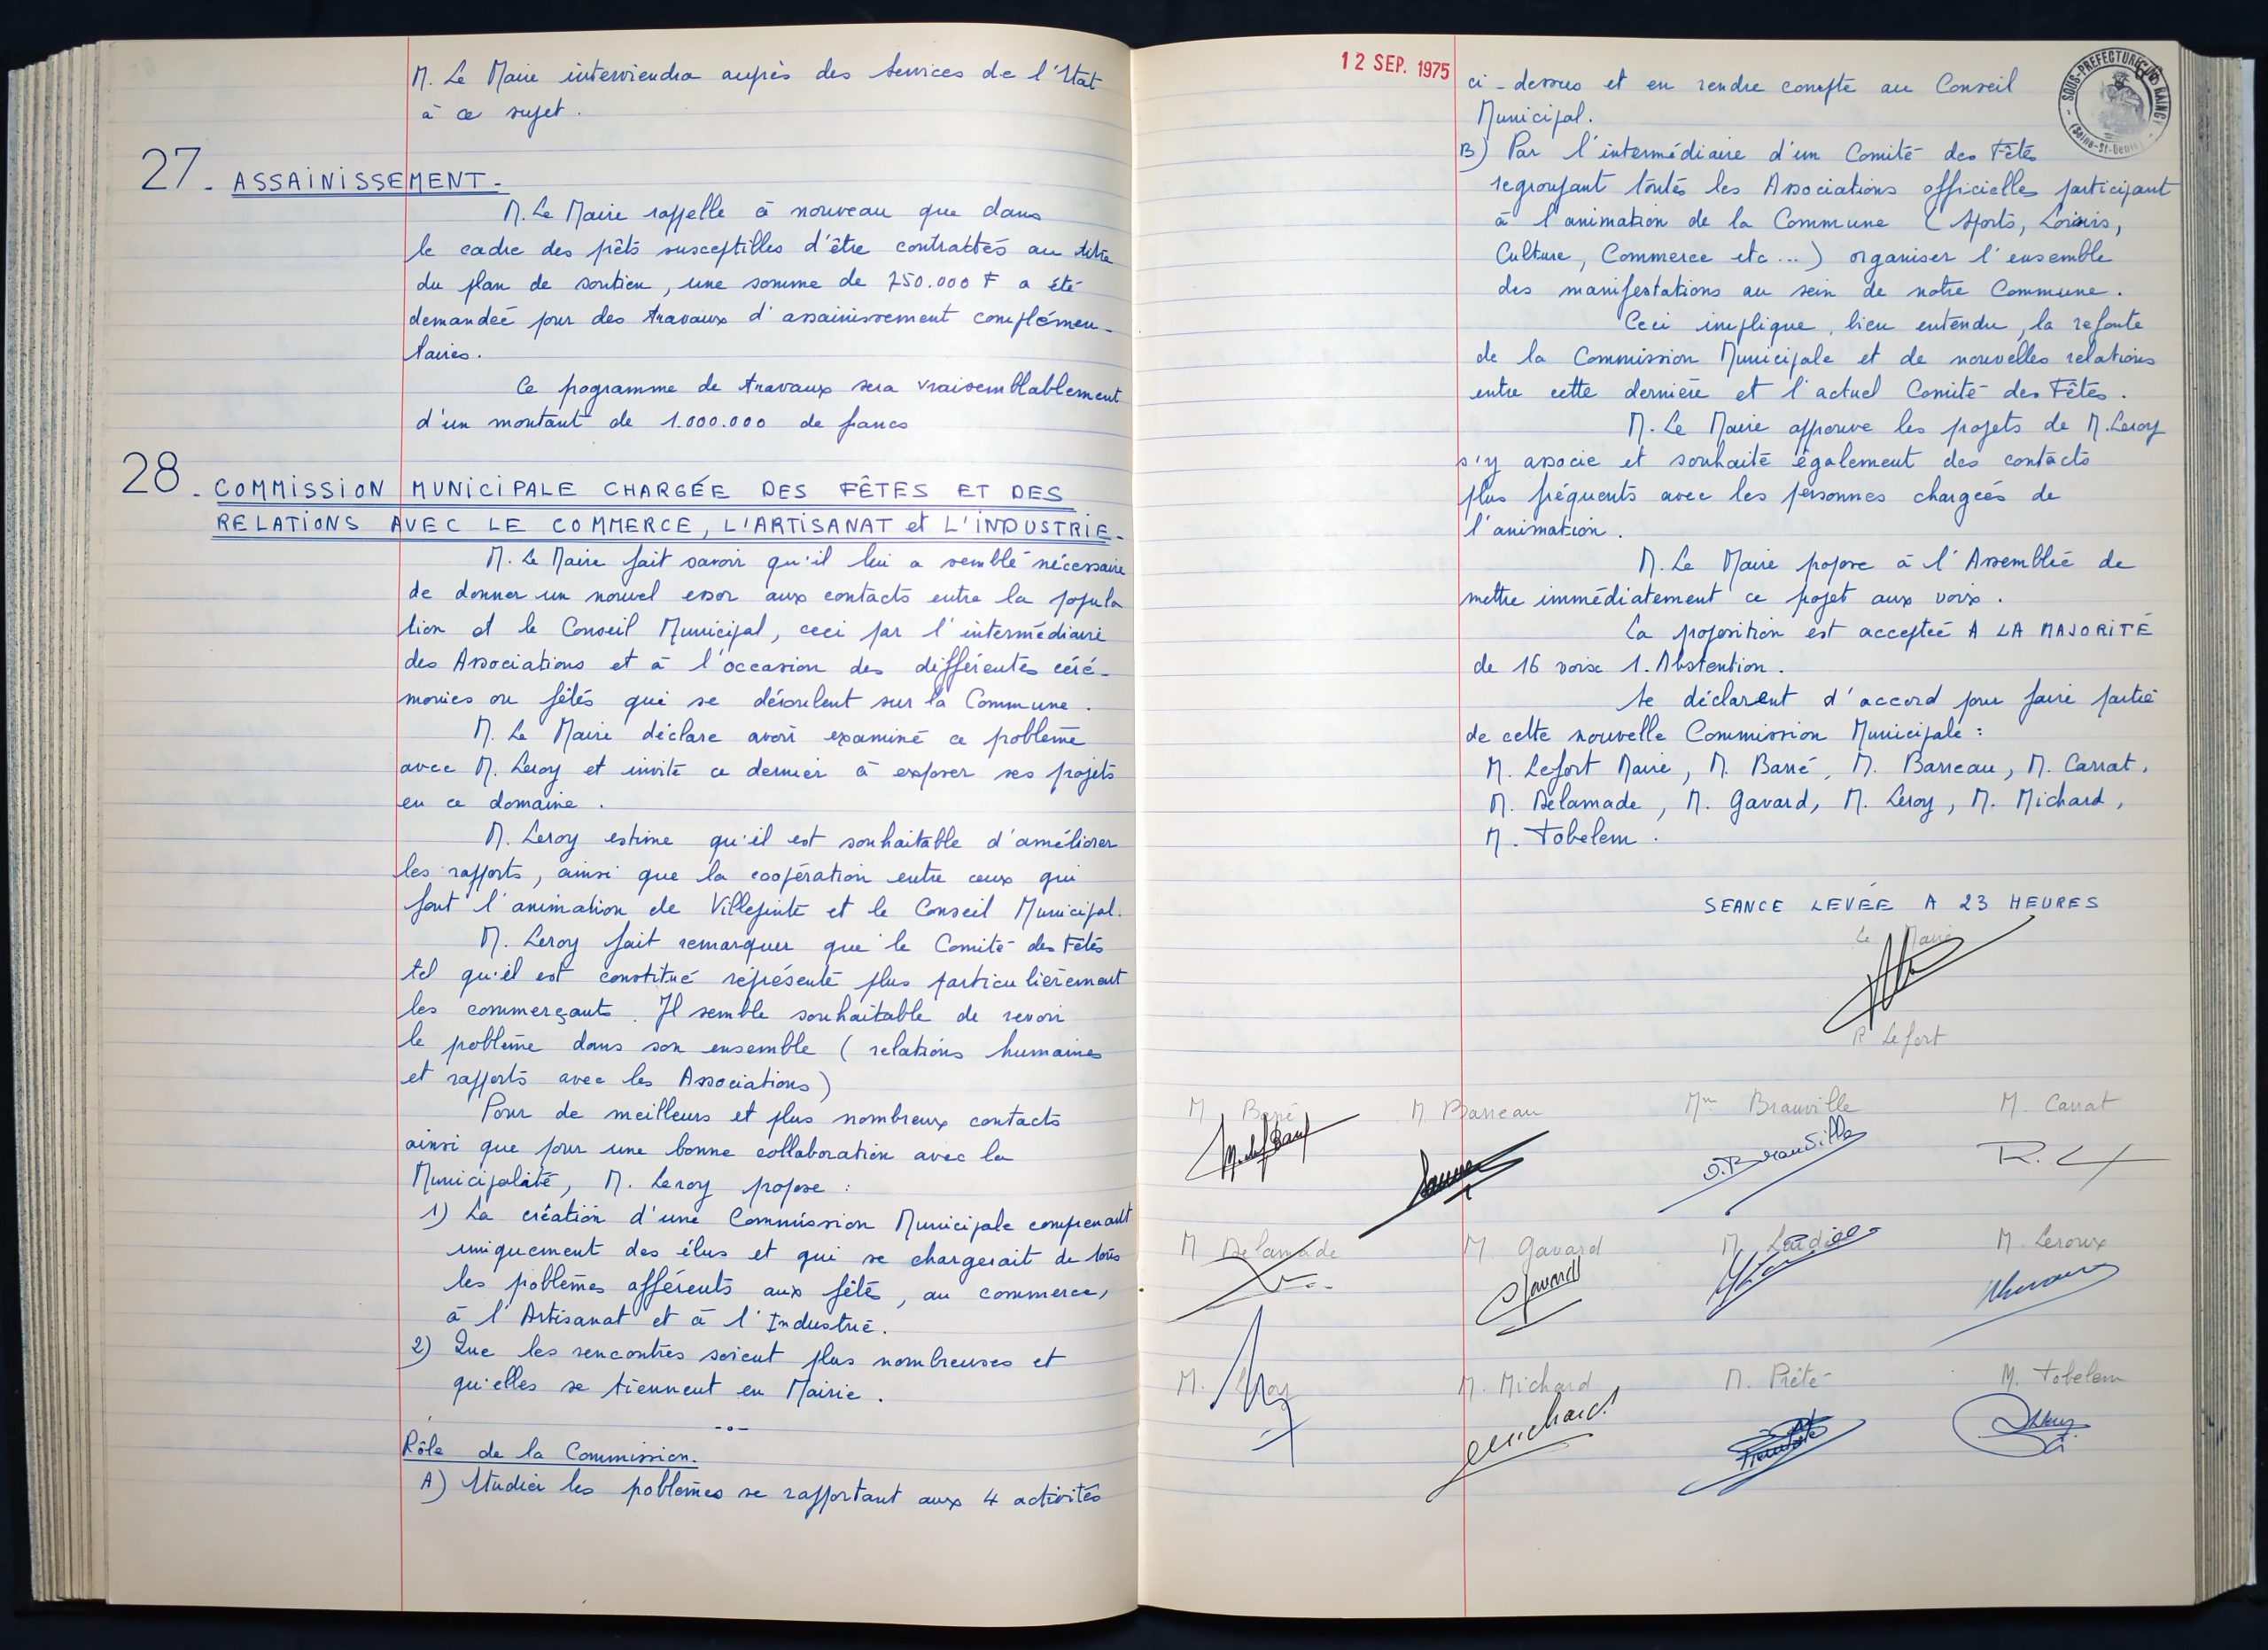 M. Le Maire interviendra auprès des Services de l'Etat
à ce sujet.
27. ASSAINISSEMENT.
M. Le Maire rappelle à nouveau que dans
le cadre des prêts susceptibles d'être contractés au titre
du plan de soutien, une somme de 750.000 F a été
demandée pour des travaux d'assainissement complémen-
taires.
Ce programme de travaux sera vraisemblablement
d'un montant de 1.000.000 de francs
28. COMMISSION MUNICIPALE CHARGÉE DES FÊTES ET DES
RELATIONS AVEC LE COMMERCE, L'ARTISANAT et L'INDUSTRIE.
M. Le Maire fait savoir qu'il lui a semblé nécessaire
de donner un nouvel essor aux contacts entre la popula
tion et le Conseil Municipal, ceci par l'intermédiaire
des Associations et à l'occasion des différentes céré-
monies ou fêtes qui se déroulent sur la Commune.
M. Le Maire déclare avoir examiné ce problème
avec M. Leroy et invite ce dernier à exposer ses projets
en ce domaine.
M. Leroy estime qu'il est souhaitable d'améliorer
les rapports, ainsi que la coopération entre ceux qui
font l'animation de Villepinte et le Conseil Municipal.
M. Leroy fait remarquer que le Comité des Fêtes
tel qu'il est constitué représente plus particulièrement
les commerçants. Il semble souhaitable de revoir
le problème dans son ensemble (relations humaines
et rapports avec les Associations)
Pour de meilleurs et plus nombreux contacts
ainsi que pour une bonne collaboration avec la
Municipalité, M. Leroy propose :
1) La création d'une Commission Municipale comprenant
uniquement des élus et qui se chargerait de tous
les problèmes afférents aux fêtes, au commerce,
à l'Artisanat et à l'Industrie.
2) Que les rencontres soient plus nombreuses et
qu'elles se tiennent en Mairie.
-o-
Rôle de la Commission.
A) Etudier les problèmes se rapportant aux 4 activités
12 SEP. 1975
SOUS-PREFECTURE DU RAINCY
(Seine-St-Denis)
ci-dessus et en rendre compte au Conseil
Municipal.
B) Par l'intermédiaire d'un Comité des Fêtes
regroupant toutes les Associations officielles participant
à l'animation de la Commune (Sports, Loisirs,
Culture, Commerce etc...) organiser l'ensemble
des manifestations au sein de notre Commune.
Ceci implique, bien entendu, la refonte
de la Commission Municipale et de nouvelles relations
entre cette dernière et l'actuel Comité des Fêtes.
M. Le Maire approuve les projets de M. Leroy
s'y associe et souhaite également des contacts
plus fréquents avec les personnes chargées de
l'animation.
M. Le Maire propose à l'Assemblée de
mettre immédiatement ce projet aux voix.
La proposition est acceptée A LA MAJORITÉ
de 16 voix 1. Abstention.
Se déclarent d'accord pour faire partie
de cette nouvelle Commission Municipale :
M. Lefort Maire, M. Barré, M. Barreau, M. Carrat,
M. Delamade, M. Gavard, M. Leroy, M. Michard,
M. Tobelem.
SEANCE LEVÉE A 23 HEURES
Le Maire
R Lefort
M. Barré M. Barreau Mme Brauville M. Carrat
D. Brauville
R. C
M. Delamade M. Gavard M. Leroux
Gavard
M. Leroy M. Michard M. Prêté M. Tobelem
Michard